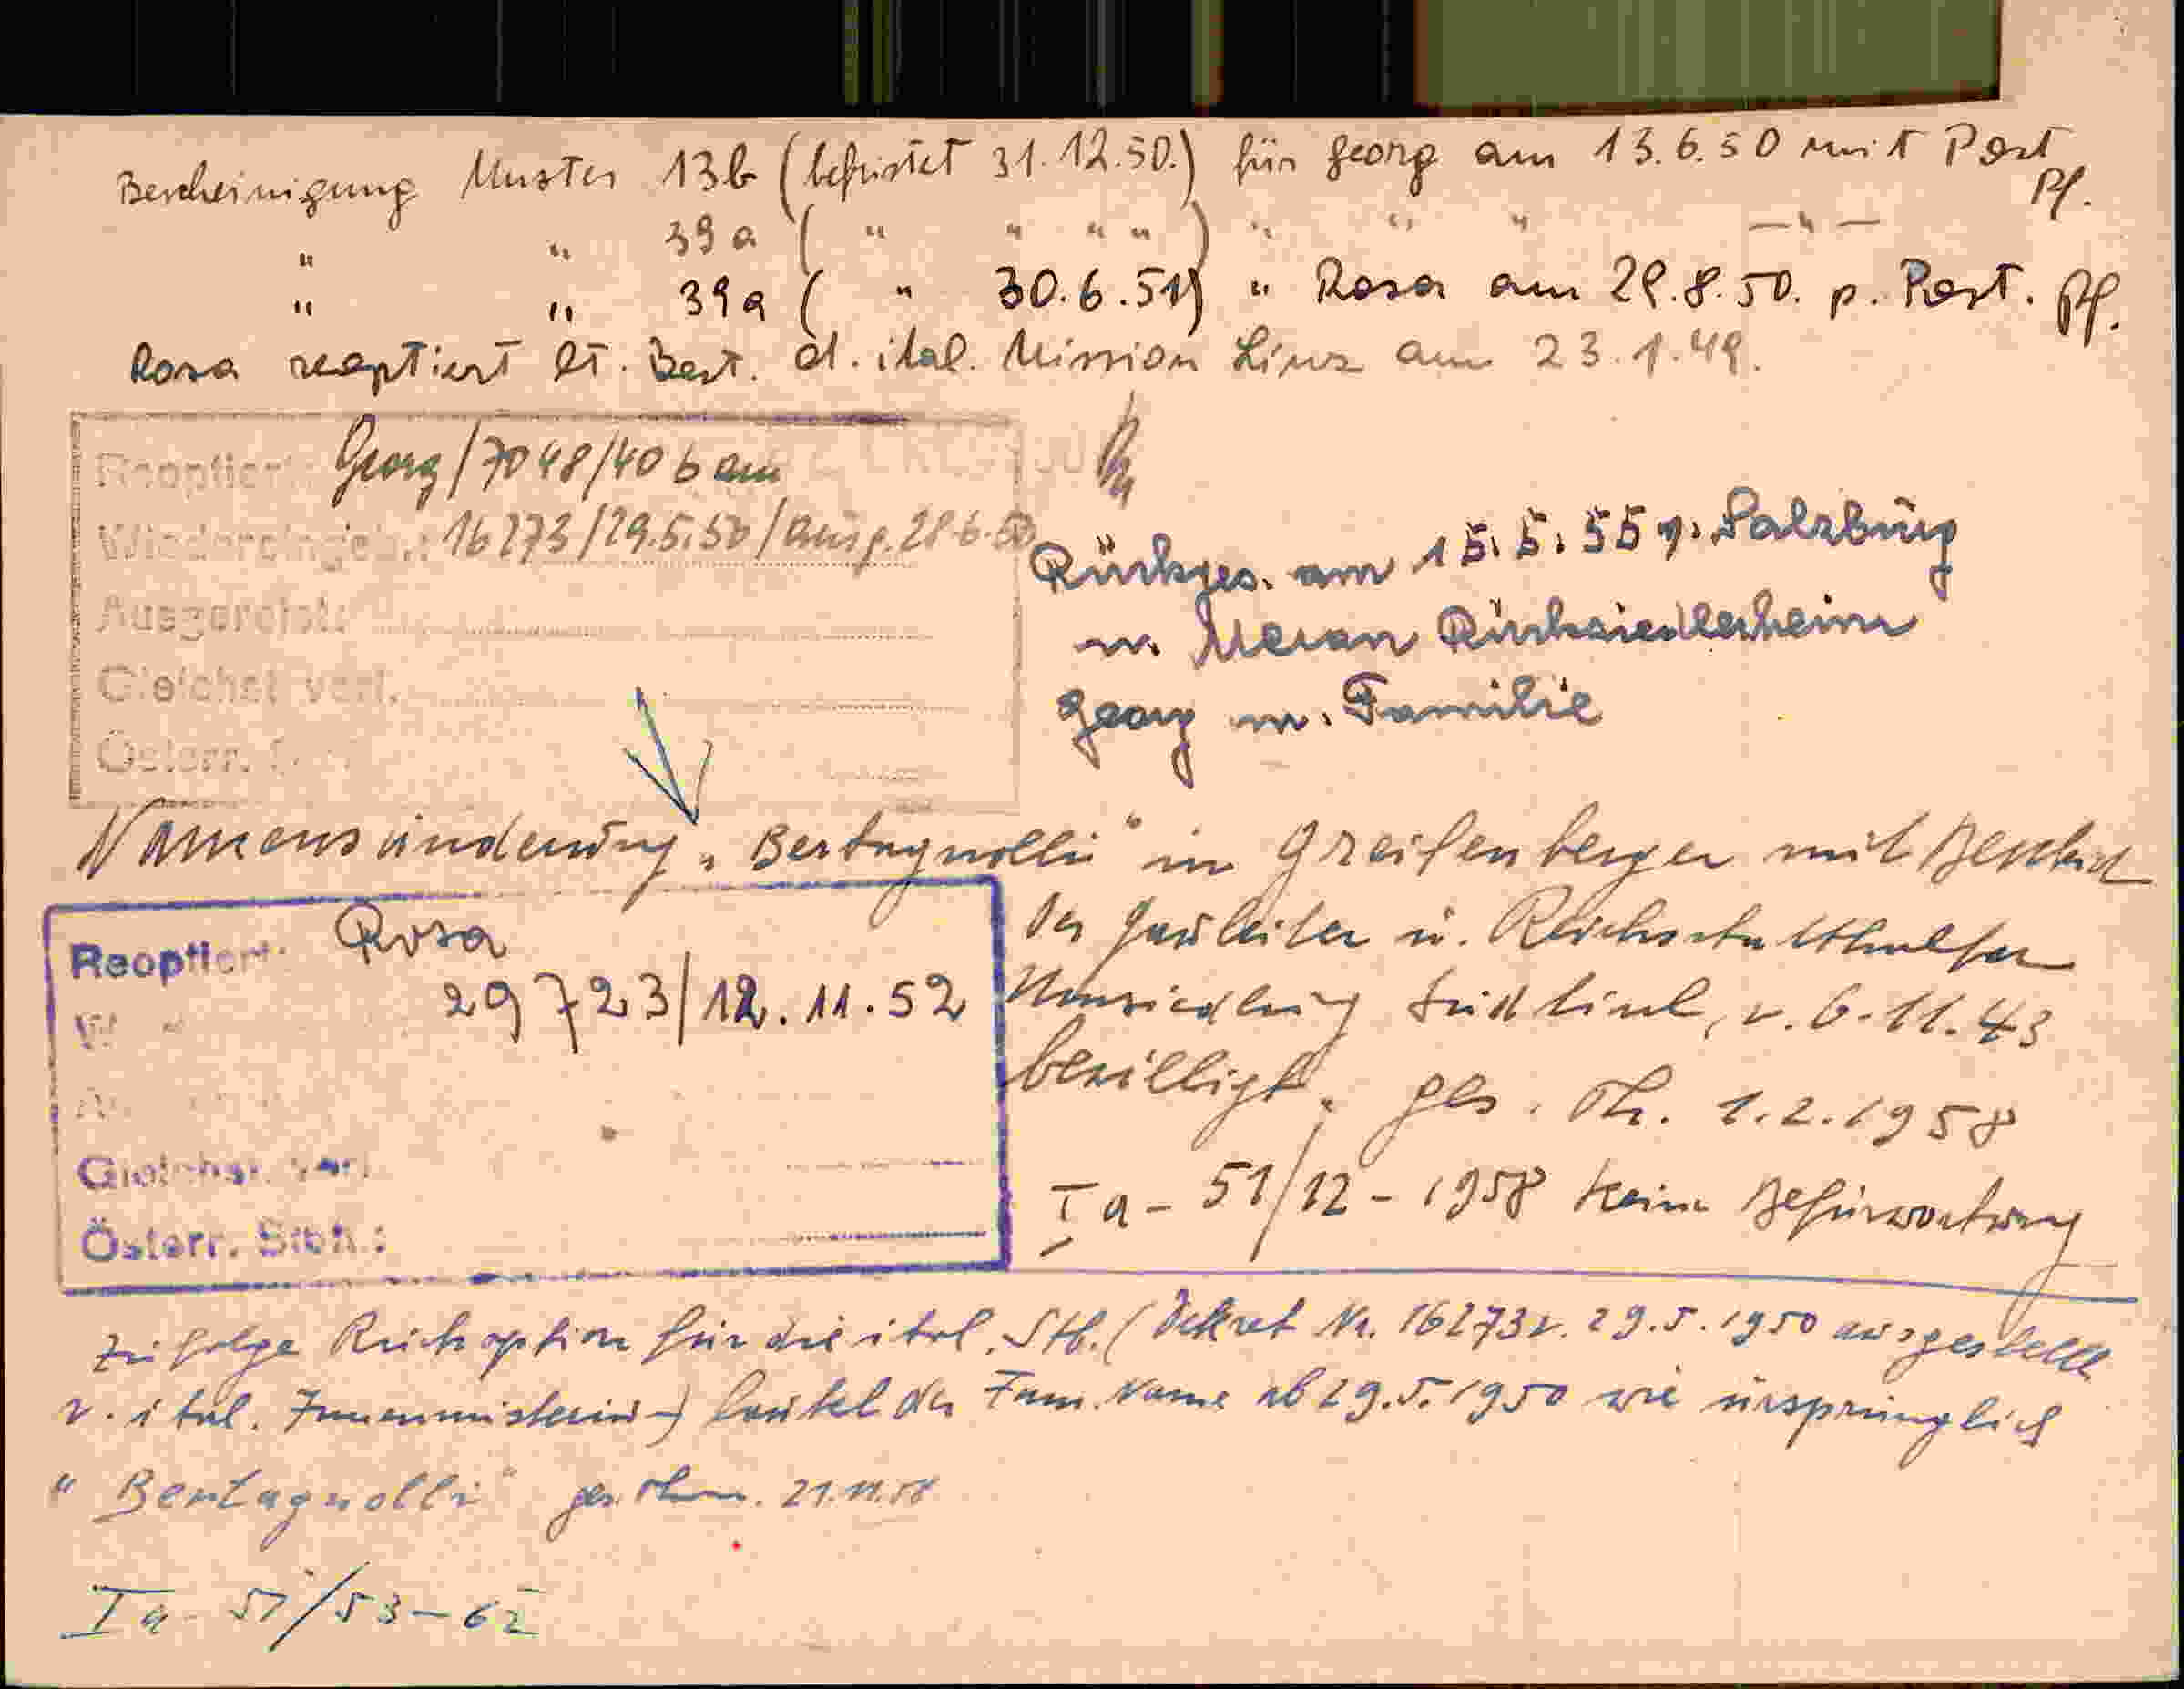 Bescheinigung Muster 13b (befristet 31.12.50.) für Georg am 13.6.50 mit Post Pf.
" " 39a ( " " " " ) " " " —"—
" " 39a ( " 30.6.51) " Rosa am 29.8.50. p. Post. Pf.
Rosa reoptiert lt. Best. d. ital. Mission Linz am 23.1.49.
Reoptiert: Georg/7048/40 b am
Wiedereingeb.: 16273/29.5.50/ausg. 28.6.50
Ausgereist:
Gleichst. verl.
Österr.
Rückges. am 15.5.55 v. Salzburg
n. Meran Rücksiedlerheim
Georg m. Familie
Namensänderung „Bertagnolli" in Greifenberger mit Bescheid
des Gauleiter u. Reichsstatthalter
Umsiedlung Südtirol, v. 6.11.43
bewilligt. ges. Th. 1.2.1958
Ia - 51/12 - 1958 keine Befürwortung
Reoptiert: Rosa
29723/12.11.52
Gleichst. verl.
Österr. Stbh.:
Zufolge Rückoption für die ital. Stb. (Dekret Nr. 16273 v. 29.5.1950 ausgestellt
v. ital. Innenministerium) lautet der Fam. Name ab 29.5.1950 wie ursprünglich
"Bertagnolli" ges. 21.11.58
Ia - 51/53-62